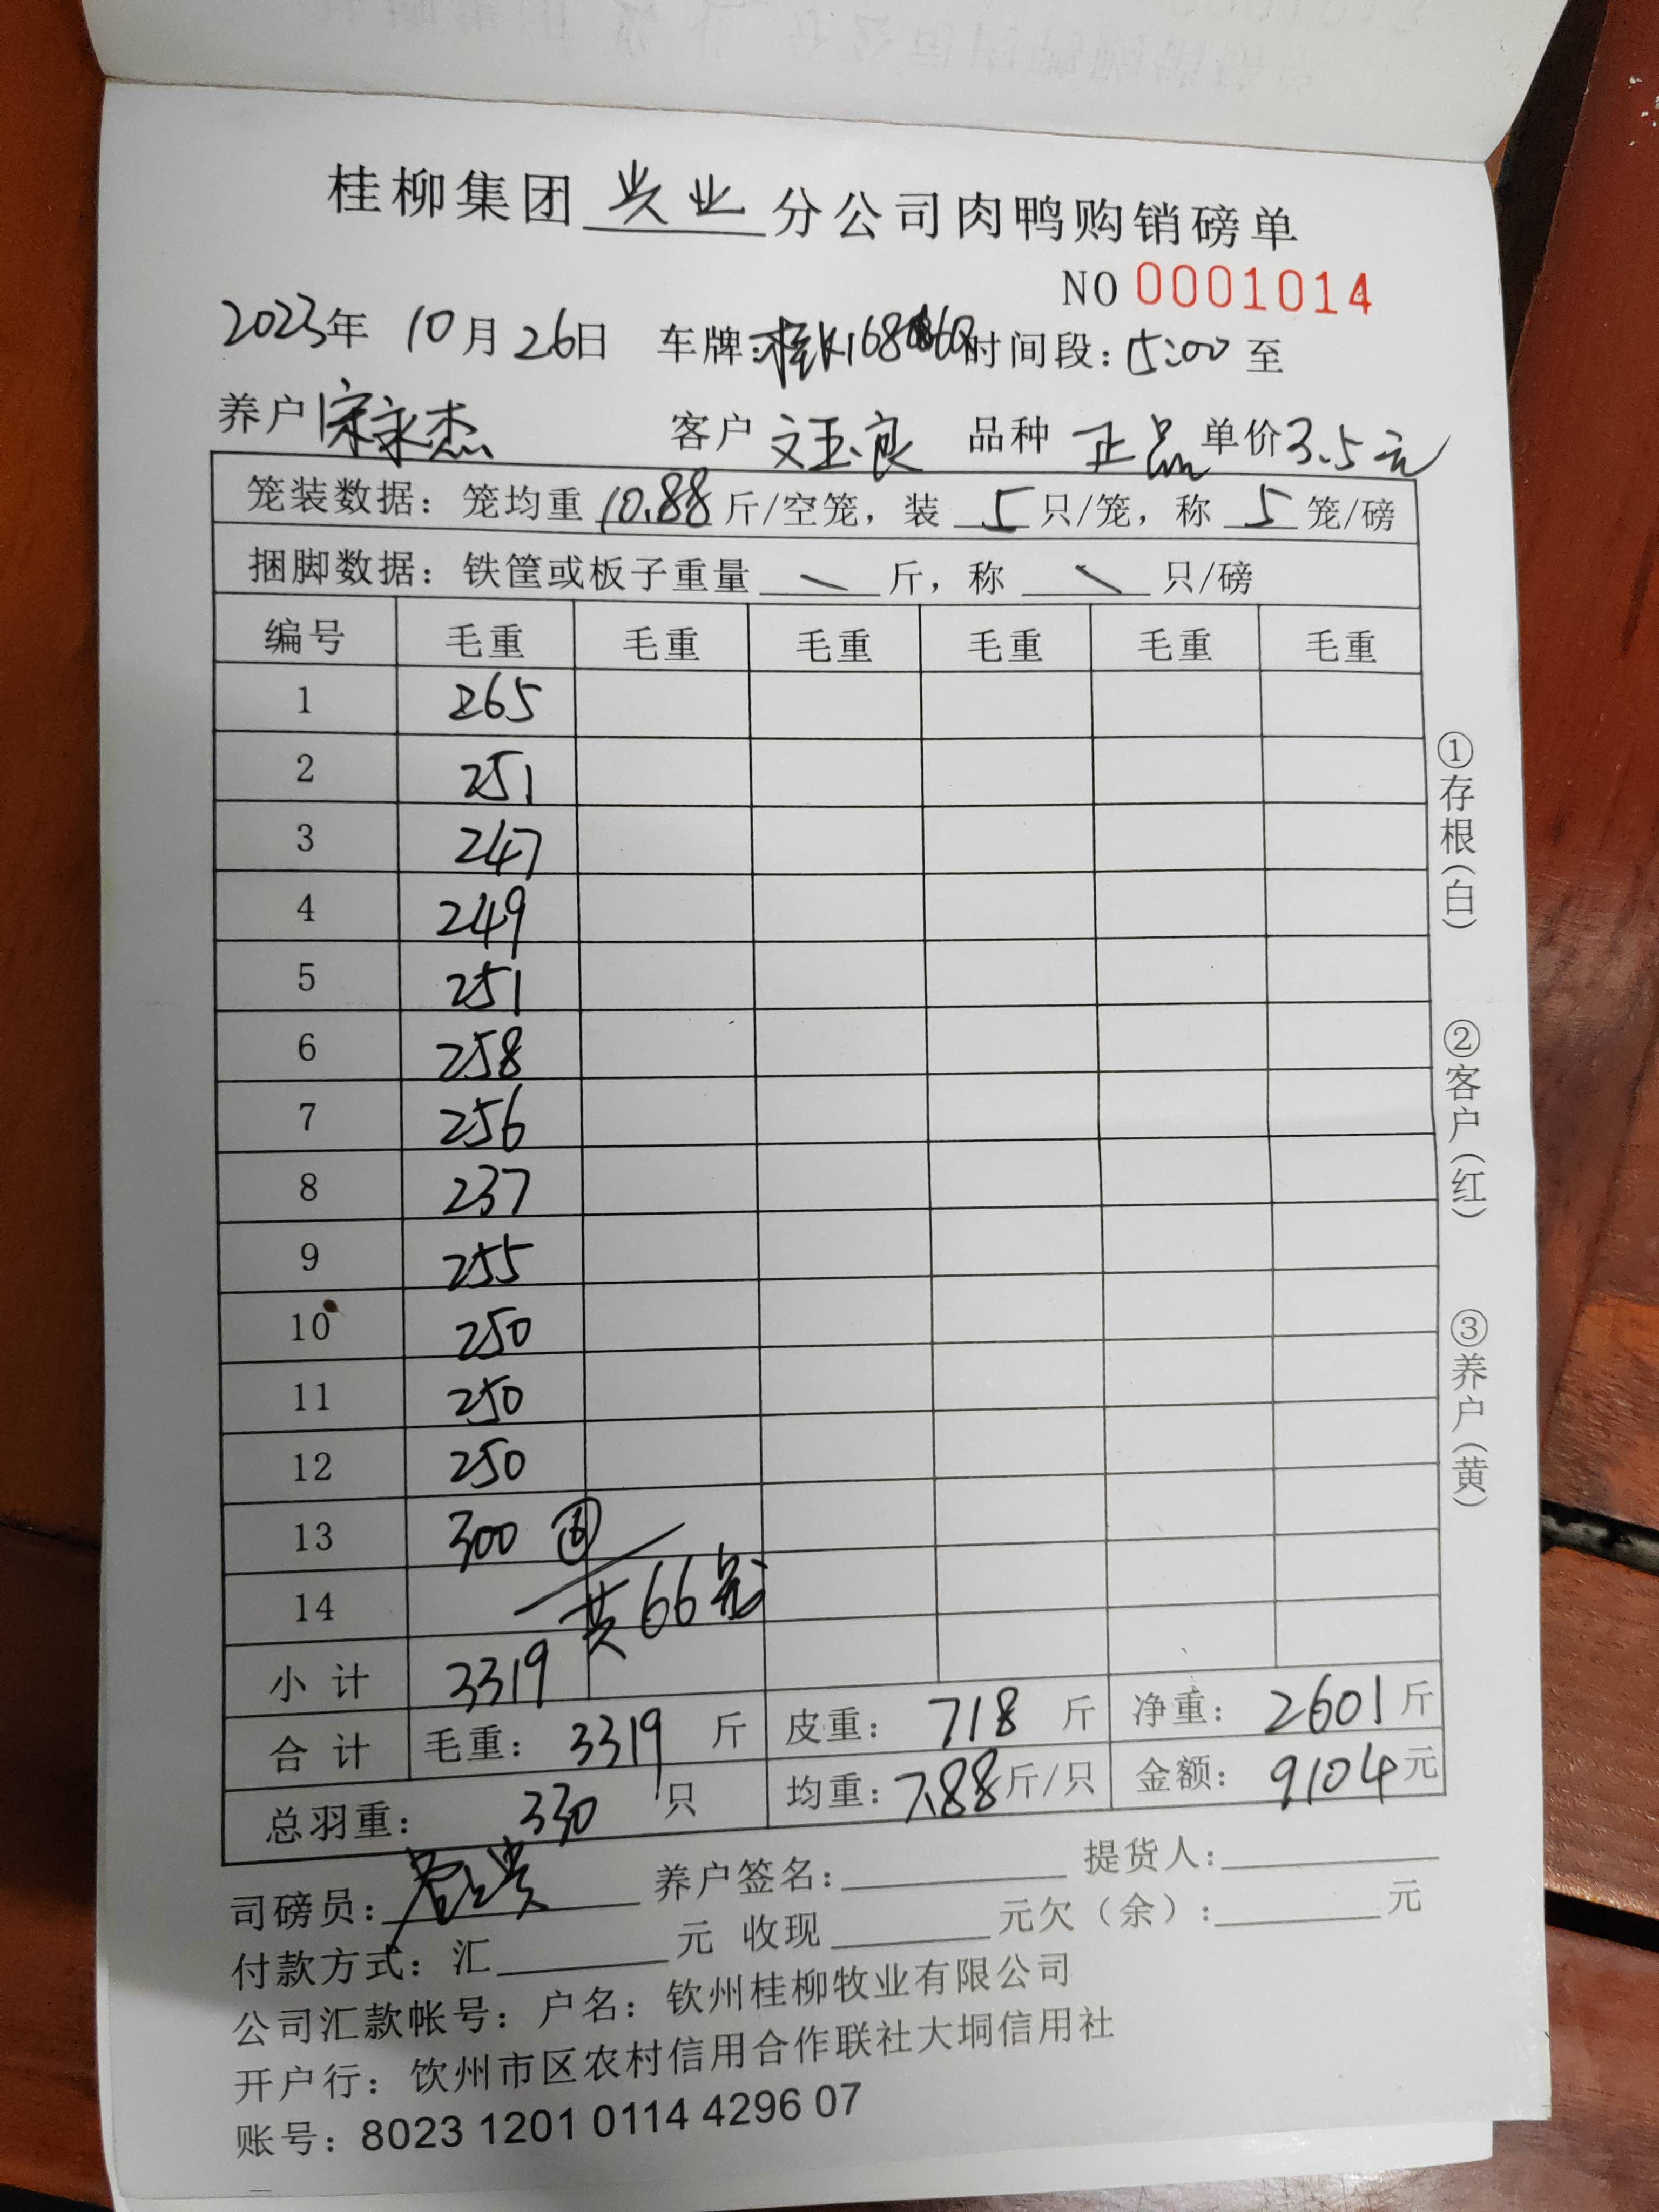 桂柳集团 兴业 分公司肉鸭购销磅单
NO 0001014
2023年 10月26日 车牌: 时间段: 15:00 至
养户 宋永杰 客户 文玉良 品种 正品 单价 3.5元
笼装数据: 笼均重 10.88 斤/空笼, 装 5 只/笼, 称 5 笼/磅
捆脚数据: 铁筐或板子重量 斤, 称 只/磅
编号 毛重 毛重 毛重 毛重 毛重 毛重
1 265
2 251
3 247
4 249
5 251
6 258
7 256
8 237
9 255
10 250
11 250
12 250
13 300 ⑥
14 共66笼
小计 3319
合计 毛重: 3319 斤 皮重: 718 斤 净重: 2601斤
总羽重: 330 只 均重: 7.88斤/只 金额: 9104元
司磅员: 养户签名: 提货人:
付款方式: 汇 元 收现 元欠(余): 元
公司汇款帐号: 户名: 钦州桂柳牧业有限公司
开户行: 饮州市区农村信用合作联社大垌信用社
账号: 8023 1201 0114 4296 07
①存根(白)
②客户(红)
③养户(黄)